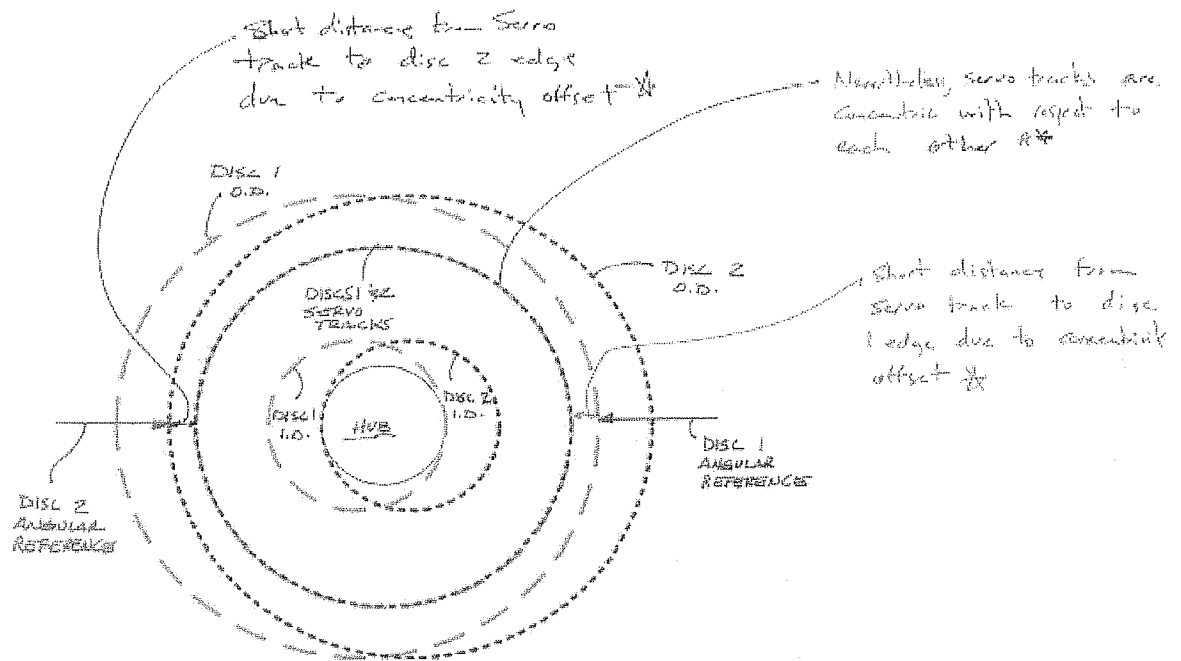 Short distance from Servo
track to disc 2 edge
due to concentricity offset *
Nonetheless, servo tracks are
concentric with respect to
each other **
DISC 1
O.D.
DISC 2
O.D.
DISCS 1 & 2
SERVO
TRACKS
Short distance from
servo track to disc
1 edge due to
offset *
DISC 1
I.D.
DISC 2
I.D.
HUB
DISC 1
ANGULAR
REFERENCE
DISC 2
ANGULAR
REFERENCE